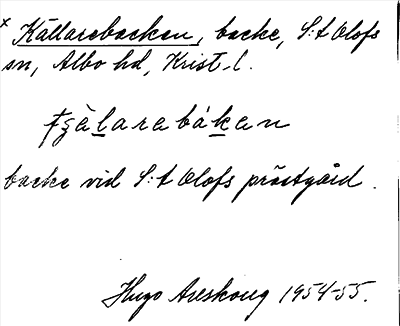 x Källarebacken, backe, S:t Olofs
sn, Albo hd, Krist. l.
tʒàlarebákan
backe vid S:t Olofs prästgård.
Hugo Areskoug 1954-55.